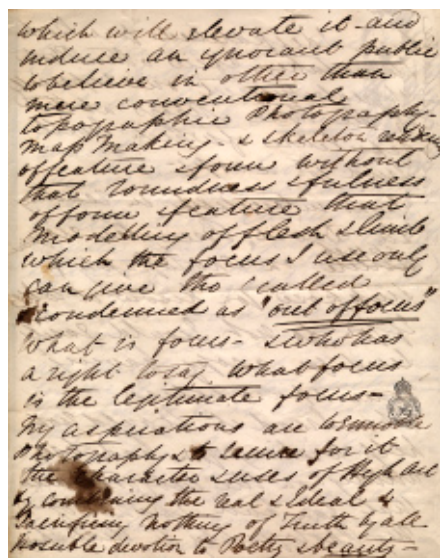 which will elevate it - and
induce an ignorant public
to believe in other than
mere conventional
topographic Photography -
map making - & skeleton rendering
of feature & form without
that roundness & fulness
of form & feature that
modelling of flesh & limb
which the focus I use only
can give tho' called
& condemned as "out of focus"
What is focus - & who has
a right to say what focus
is the legitimate focus -
My aspirations are to ennoble
Photography & to secure for it
the Character & uses of High Art
by combining the real & Ideal &
sacrificing nothing of Truth by all
possible devotion to Poetry & beauty -